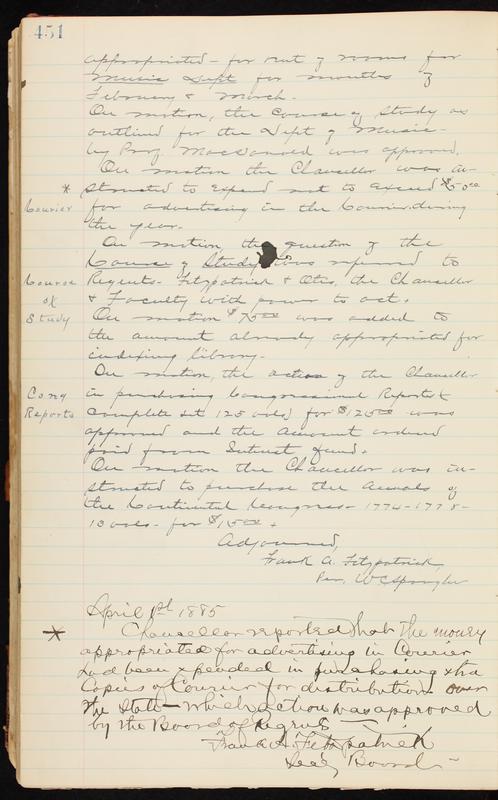 451
appropriated - for rent of rooms for
Music Dept for months of
February & March.
On motion, the Course of Study as
outlined for the Dept of Music -
by Prof. MacDonald was approved.
On motion the Chancellor was in-
* structed to expend not to exceed $50 00
Courier for advertising in the Courier during
the year.
On motion, the question of the
Course of Study was referred to
Course of Study
Regents - Fitzpatrick & Otis, the Chancellor
& Faculty with power to act.
On motion $75 00 was added to
the amount already appropriated for
indexing library.
On motion, the action of the Chancellor
Cong Reports
in purchasing Congressional Reports
complete set 125 vols for $125 00 was
approved and the account ordered
paid from Interest fund.
On motion the Chancellor was in-
structed to purchase the Annals of
the Continental Congress - 1774-1778 -
10 vols - for $15 00.
Adjourned,
Frank A. Fitzpatrick,
Per. W C Spangler
April 1st 1885
* Chancellor reported that the money
appropriated for advertising in Courier
had been expended in purchasing extra
Copies of Courier for distribution over
the State - which action was approved
by the Board of Regents -
Frank A. Fitzpatrick
Secy Board -